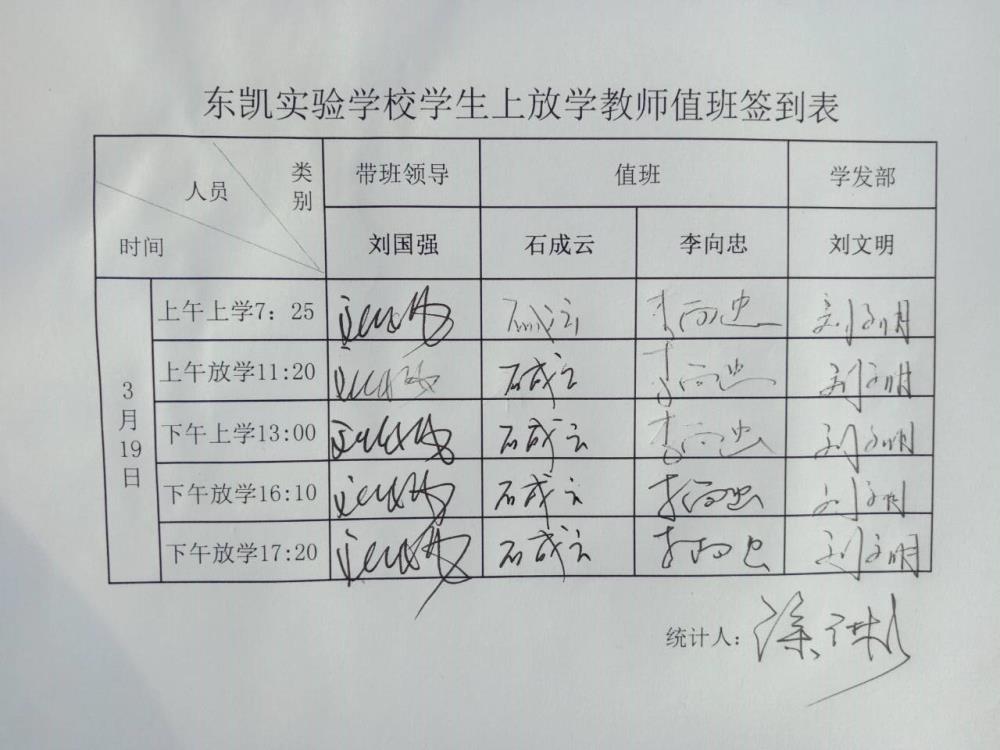 东凯实验学校学生上放学教师值班签到表
人员 类别 带班领导 值班 学发部
时间 刘国强 石成云 李向忠 刘文明
3月19日
上午上学7：25 刘国强 石成云 李向忠 刘文明
上午放学11:20 刘国强 石成云 李向忠 刘文明
下午上学13:00 刘国强 石成云 李向忠 刘文明
下午放学16:10 刘国强 石成云 李向忠 刘文明
下午放学17:20 刘国强 石成云 李向忠 刘文明
统计人：